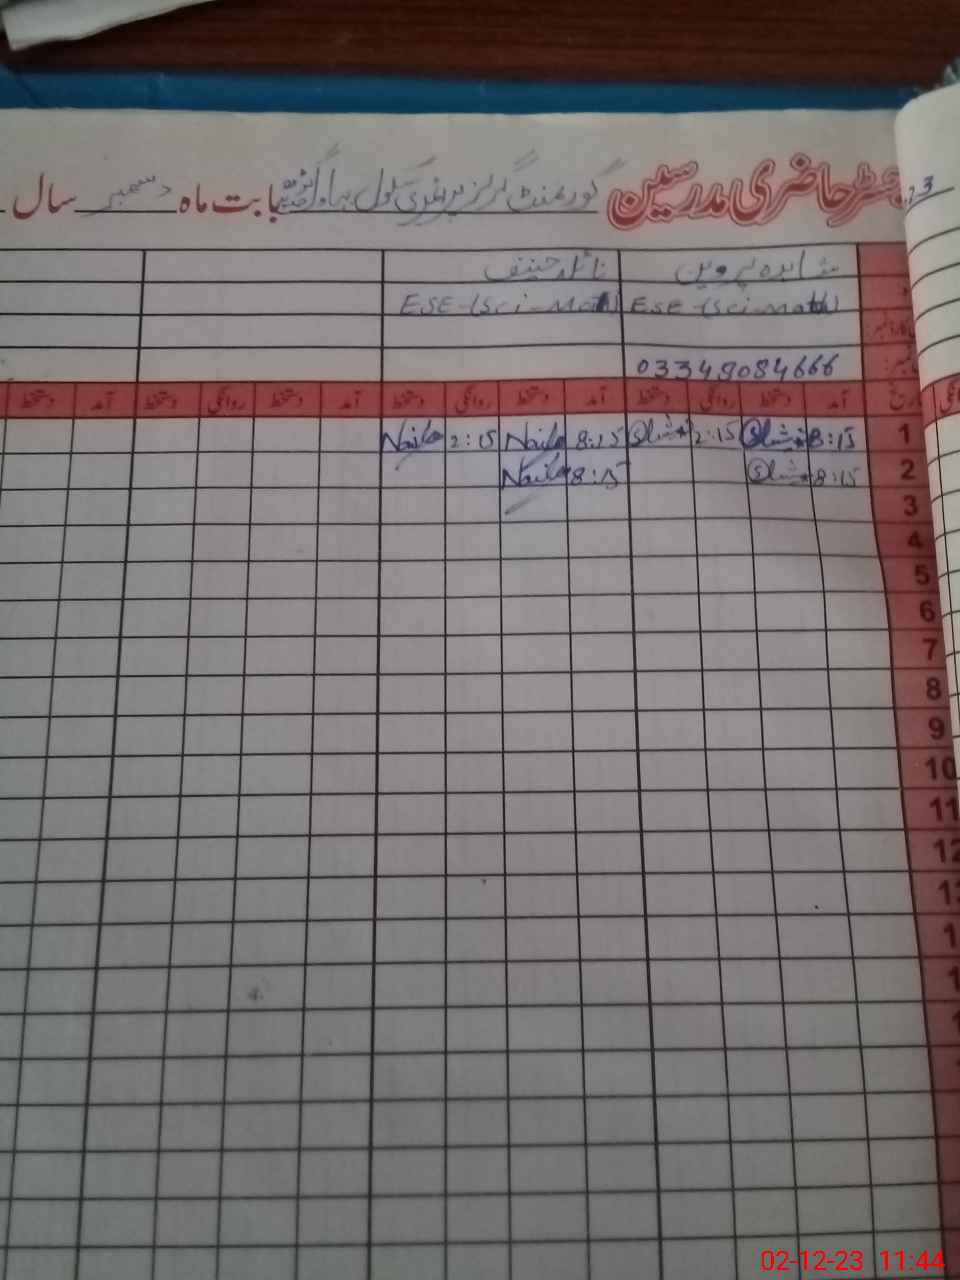 رجسٹر حاضری مدرسین گورنمنٹ گرلز پرائمری سکول بابت ماہ دسمبر سال
شاہدہ پروین نائلہ حنیف
ESE-(Sci-Math) ESE-(Sci-Math)
03348084666
تاریخ آمد دستخط روانگی دستخط آمد دستخط روانگی دستخط آمد دستخط روانگی دستخط آمد دستخط
1 8:15 2:15 8:15 Naila 2:15 Naila
2 8:15 8:15 Naila
3
4
5
6
7
8
9
10
11
12
02-12-23 11:44